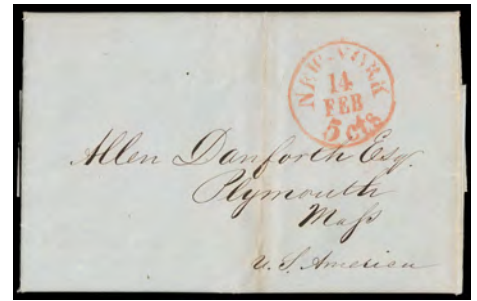 NEW-YORK
14
FEB
5 cts
Allen Danforth Esq.
Plymouth
Mass
U.S. America